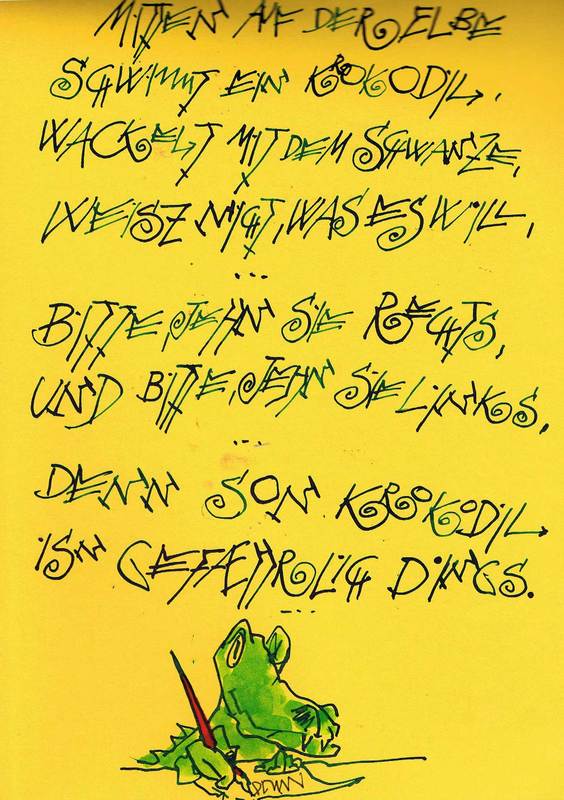 MITTEN AUF DER ELBE
SCHWIMMT EIN KROKODIL,
WACKELT MIT DEM SCHWANZE,
WEISZ NICHT, WAS ES WILL,
...
BITTE, JEHN SIE RECHTS,
UND BITTE, JEHN SIE LINKS,
...
DENN SON KROKODIL
ISN GEFAEHRLICH DINGS.
...